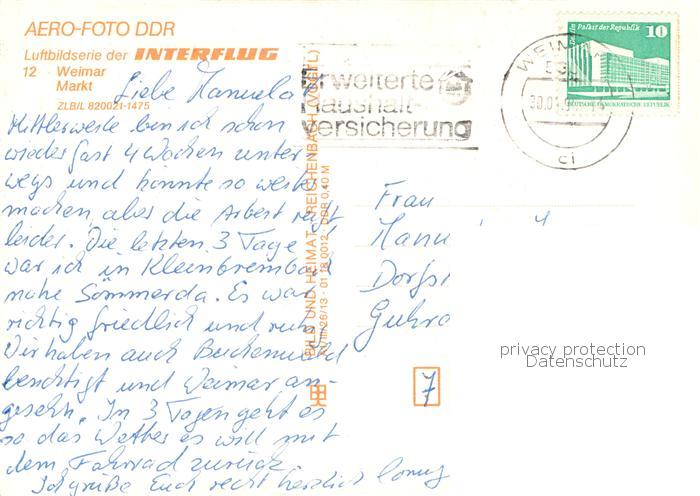 AERO-FOTO DDR
Luftbildserie der INTERFLUG
12 Weimar
Markt
ZLB/L 820021-1475
Liebe Manuela
Mittlerweile bin ich schon
wieder fast 4 Wochen unter-
wegs und könnte so weiter
machen, aber die Arbeit ruft
leider. Die letzten 3 Tage
war ich in Kleinbrembach
nahe Sömmerda. Es war
richtig friedlich und
Wir haben auch Buchenwald
besichtigt und Weimar an-
gesehn. In 3 Tagen geht es
so das Wetter es will mit
dem Fahrrad zurück.
Ich grüße Euch recht herzlich
BILD UND HEIMAT REICHENBACH (VOGTL)
01 18 0012 DDR 0,40 M
Erweiterte
Haushalt-
versicherung
WEIMAR
Palast der Republik
10
DEUTSCHE DEMOKRATISCHE REPUBLIK
Frau
Manu
Dorfst
7
privacy protection
Datenschutz